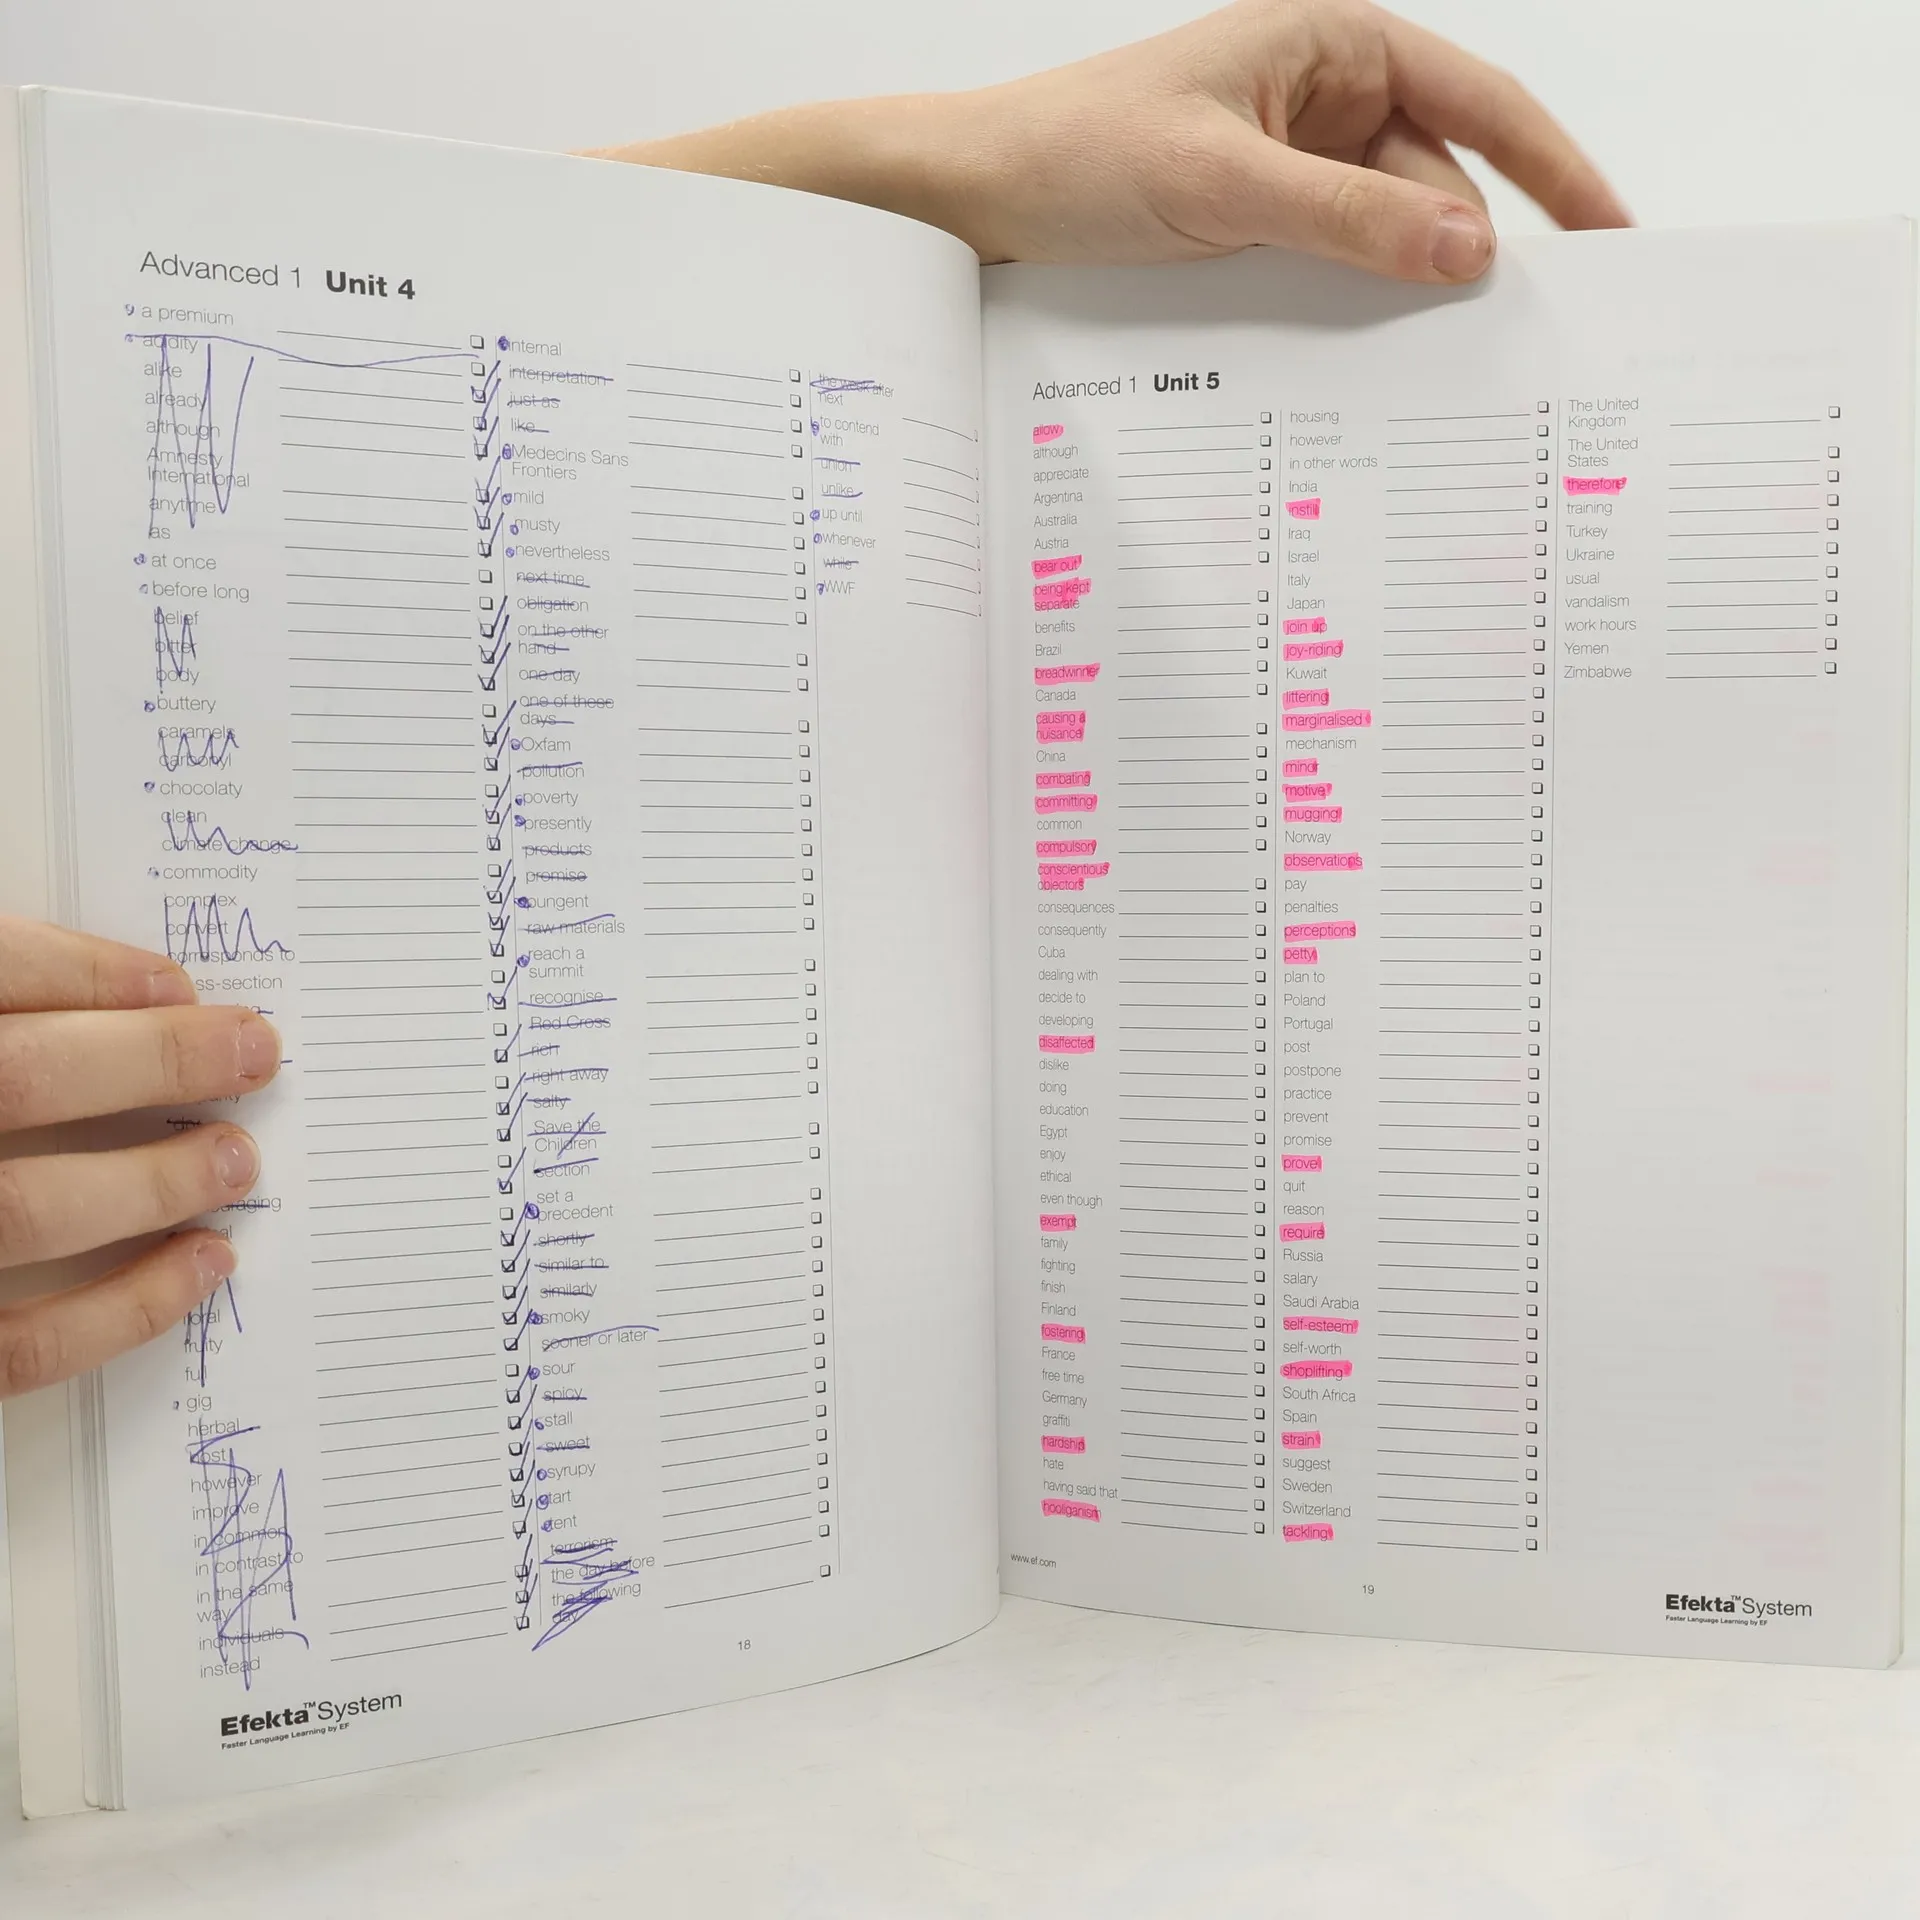 Advanced 1 Unit 4
a premium
acidity
alike
already
although
Amnesty
International
anytime
as
at once
before long
belief
bitter
body
buttery
caramels
carbonyl
chocolaty
clean
climate change
commodity
complex
convert
corresponds to
ss-section
floral
fruity
full
gig
herbal
host
however
improve
in common
in contrast to
in the same
way
individuals
instead
internal
interpretation
just as
like
Medecins Sans
Frontiers
mild
musty
nevertheless
next time
obligation
on the other
hand
one day
one of these
days
Oxfam
pollution
poverty
presently
products
promise
pungent
raw materials
reach a
summit
recognise
Red Cross
rich
right away
salty
Save the
Children
section
set a
precedent
shortly
similar to
similarly
smoky
sooner or later
sour
spicy
stall
sweet
syrupy
tart
tent
terrorism
the day before
the following
day
the week after
next
to contend
with
union
unlike
up until
whenever
while
WWF
18
Efekta™System
Faster Language Learning by EF
Advanced 1 Unit 5
allow
although
appreciate
Argentina
Australia
Austria
bear out
being kept
separate
benefits
Brazil
breadwinner
Canada
causing a
nuisance
China
combating
committing
common
compulsory
conscientious
objectors
consequences
consequently
Cuba
dealing with
decide to
developing
disaffected
dislike
doing
education
Egypt
enjoy
ethical
even though
exempt
family
fighting
finish
Finland
fostering
France
free time
Germany
graffiti
hardship
hate
having said that
hooliganism
housing
however
in other words
India
instill
Iraq
Israel
Italy
Japan
join up
joy-riding
Kuwait
littering
marginalised
mechanism
mind
motive
mugging
Norway
observations
pay
penalties
perceptions
petty
plan to
Poland
Portugal
post
postpone
practice
prevent
promise
prove
quit
reason
require
Russia
salary
Saudi Arabia
self-esteem
self-worth
shoplifting
South Africa
Spain
strain
suggest
Sweden
Switzerland
tackling
The United
Kingdom
The United
States
therefore
training
Turkey
Ukraine
usual
vandalism
work hours
Yemen
Zimbabwe
www.ef.com
19
Efekta™System
Faster Language Learning by EF